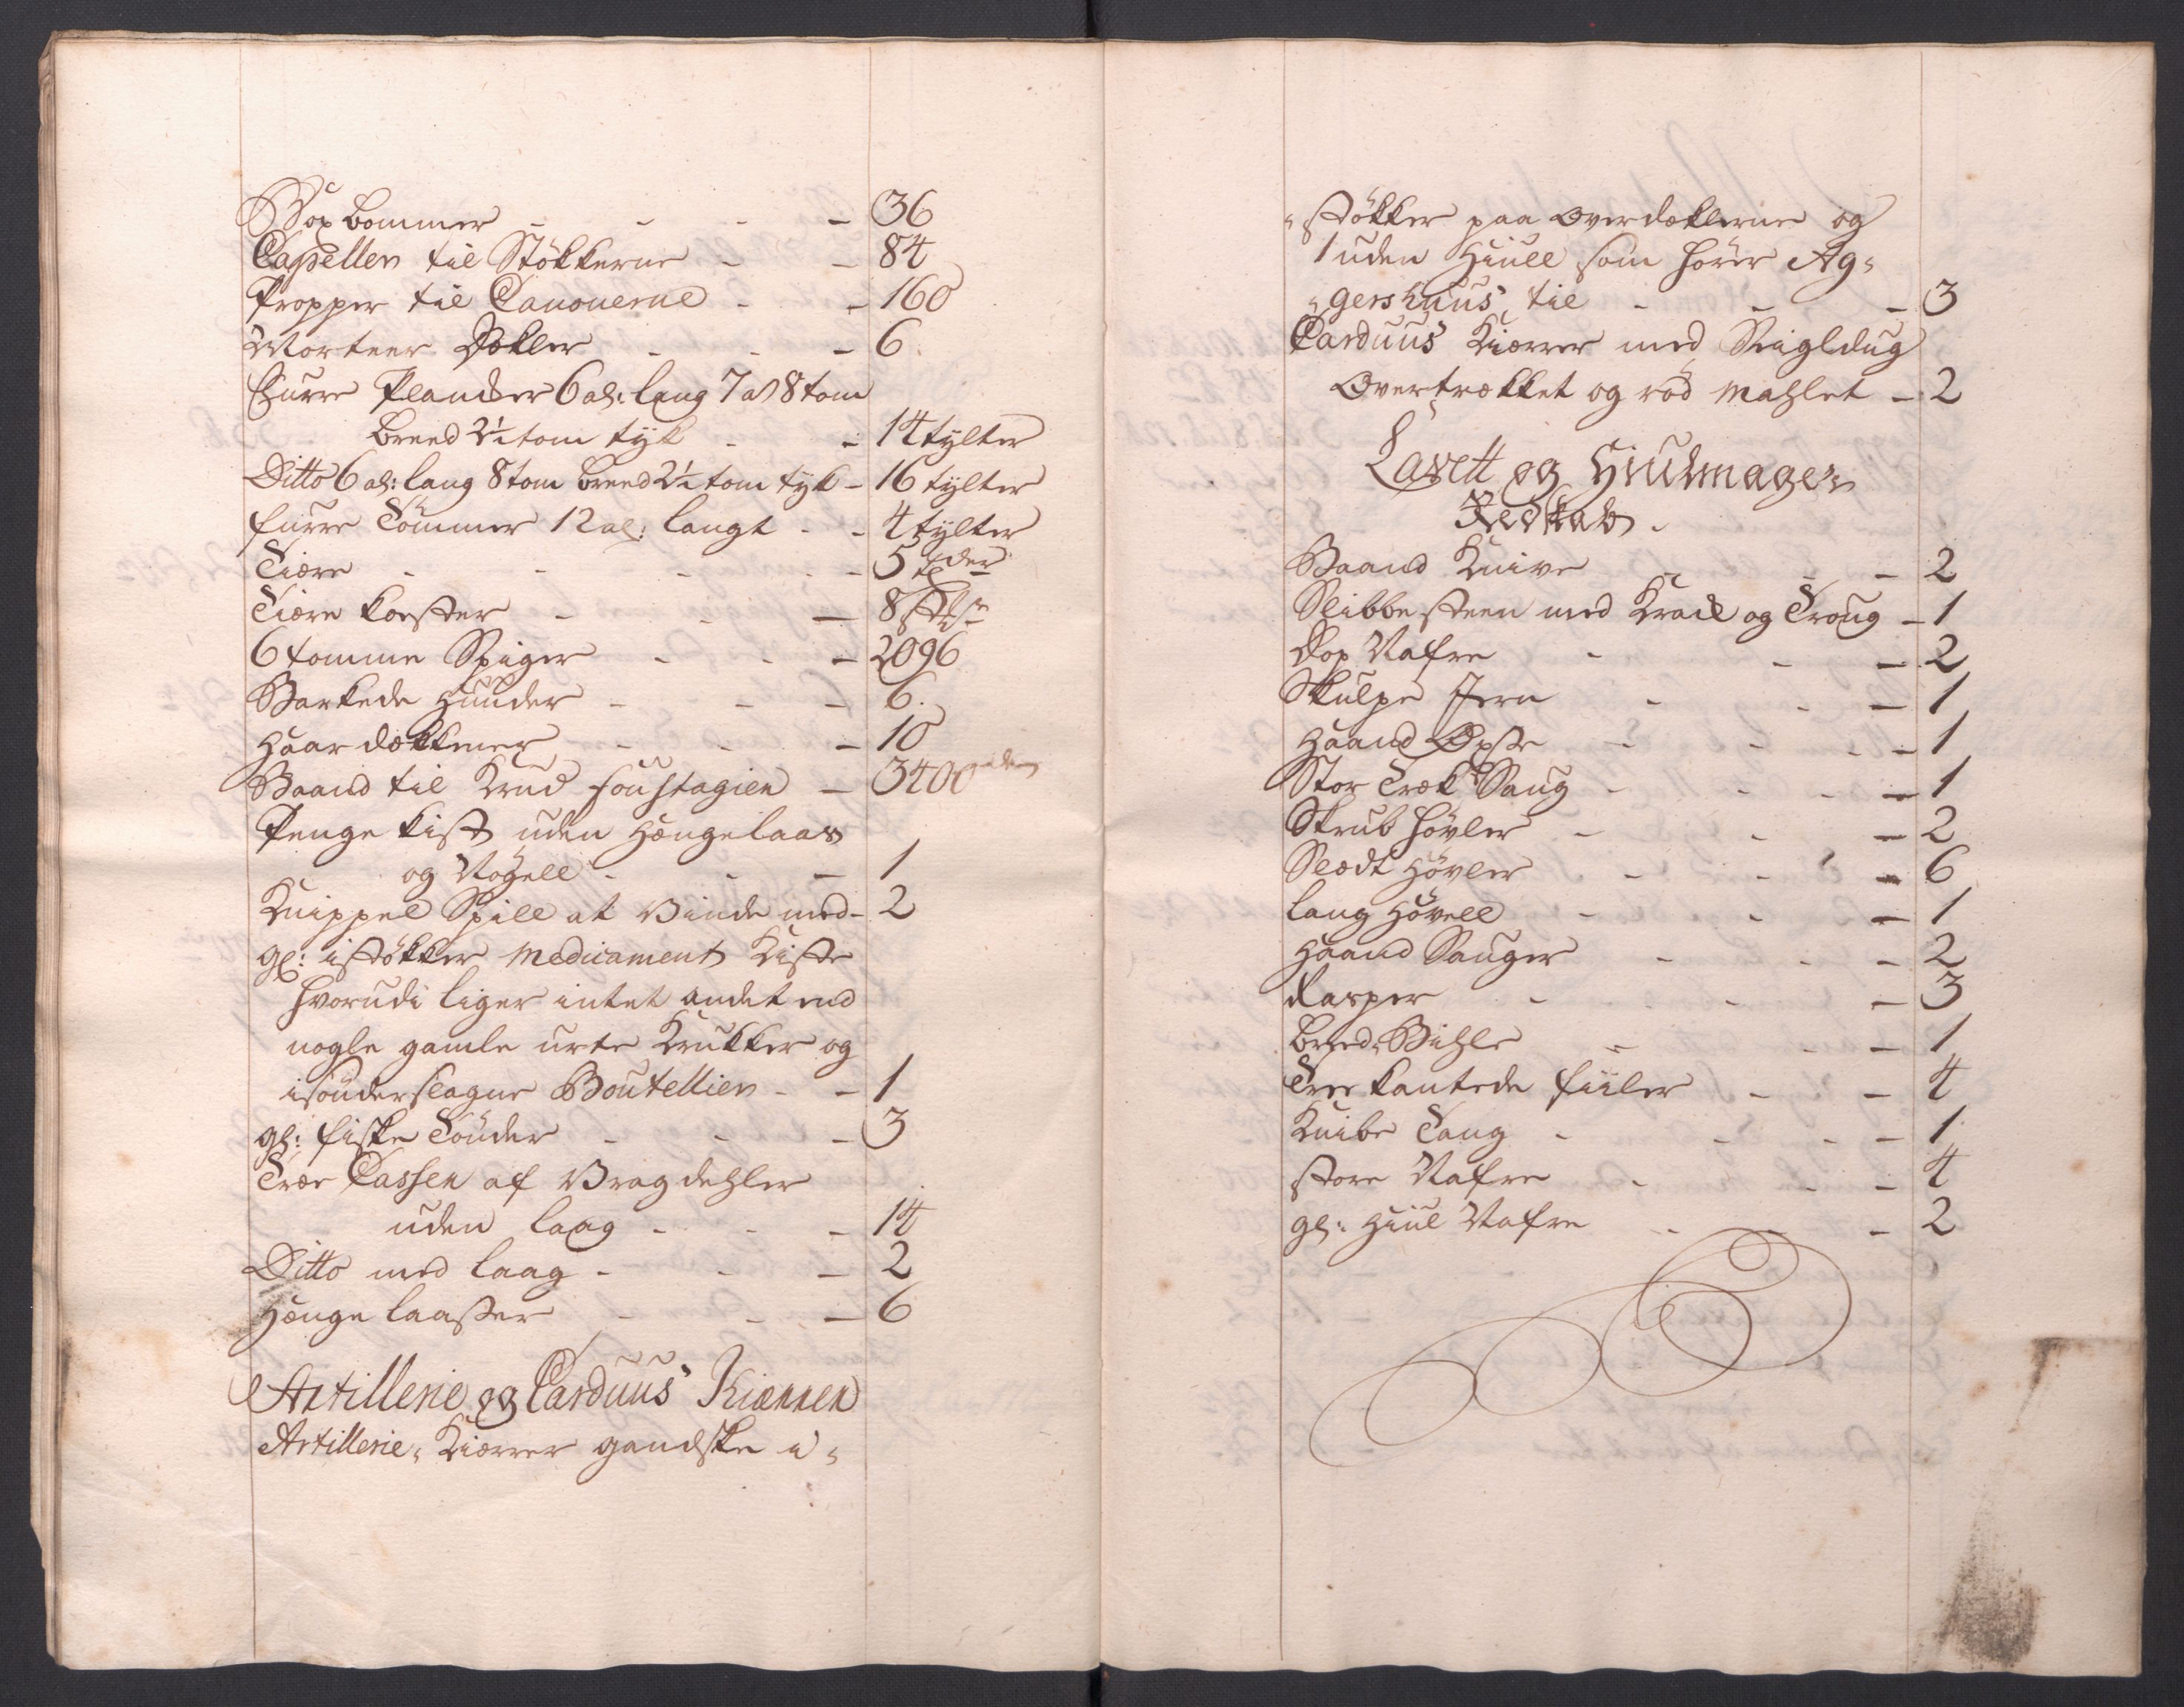 Box bommer - - - - 36
Capellen til Stökkerne - - 84
Propper til Canonerne - - 160
Morteer Dekler - - - 6
Furre Plancker 6 al: lang 7 a 8 tom
breed 2½ tom tyk - - 14 tylter
Ditto 6 al: lang 8 tom breed 2½ tom tyk - 16 tylter
furre Tömmer 12 al: langt - - 4 tylter
Tiære - - - - - 5
Tiære koester - - - 8
6 tomme Spiger - - - 2096
Barkede Huuder - - - 6.
Haar dækkener - - - 10
Baand til Krud foustagien - 3400
Penge kist uden Hængelaas
og Nögell - - - 1
Knippel Spill at Vinde med - 2
gl: istökker Medicament Kiste
hvorudi liger intet andet end
nogle gamle urte Krukker og
isönderslagne Boutellien - - 1
gl: fiske Tönder - - - 3
Træe Cassen af Vragdehler
uden laag - - - 14
Ditto med laag - - - 2
Hænge laasser - - - 6
Artillerie og Carduus Kiærren
Artillerie, Kiærrer gandske i,
,stökker paa Overdeklerne og
1 uden Hiull som hörer Ag,
,gershuus til - - - 3
Carduus Kiærrer med Seigldug
Overtrækket og röd Mahlet - 2
Lavett og Hiulmager
Redskab.
Baand Knive - - - 2
Slibbe steen med Krail og Troug - 1
Dop Nafre - - - 2
Skulpe Jern - - - 1
Haand Öxse - - - - 1
Stor Træk Saug - - - - 1
Skrub hövler - - - 2
Slædt Hövler - - - 6
lang Hövell - - - 1
Haand Sauger - - - 2
Rasper - - - 3
breed Bihle - - - 1
Tree kantede fiiler - - 4
Knibe Tang - - - - 1
store Nafre - - - 4
gl: Hiul Nafre - - - 2